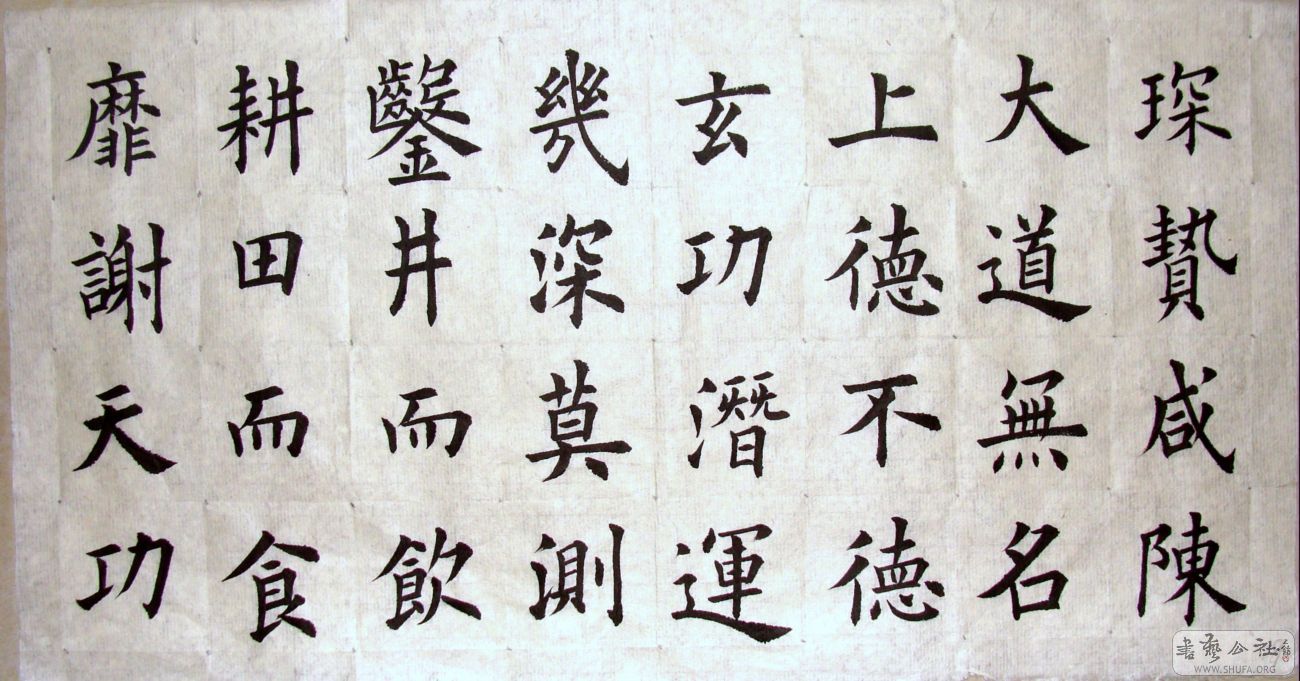 琛贄咸陳
大道無名
上德不德
玄功潛運
幾深莫測
鑿井而飲
耕田而食
靡謝天功
書藝公社
WWW.SHUFA.ORG